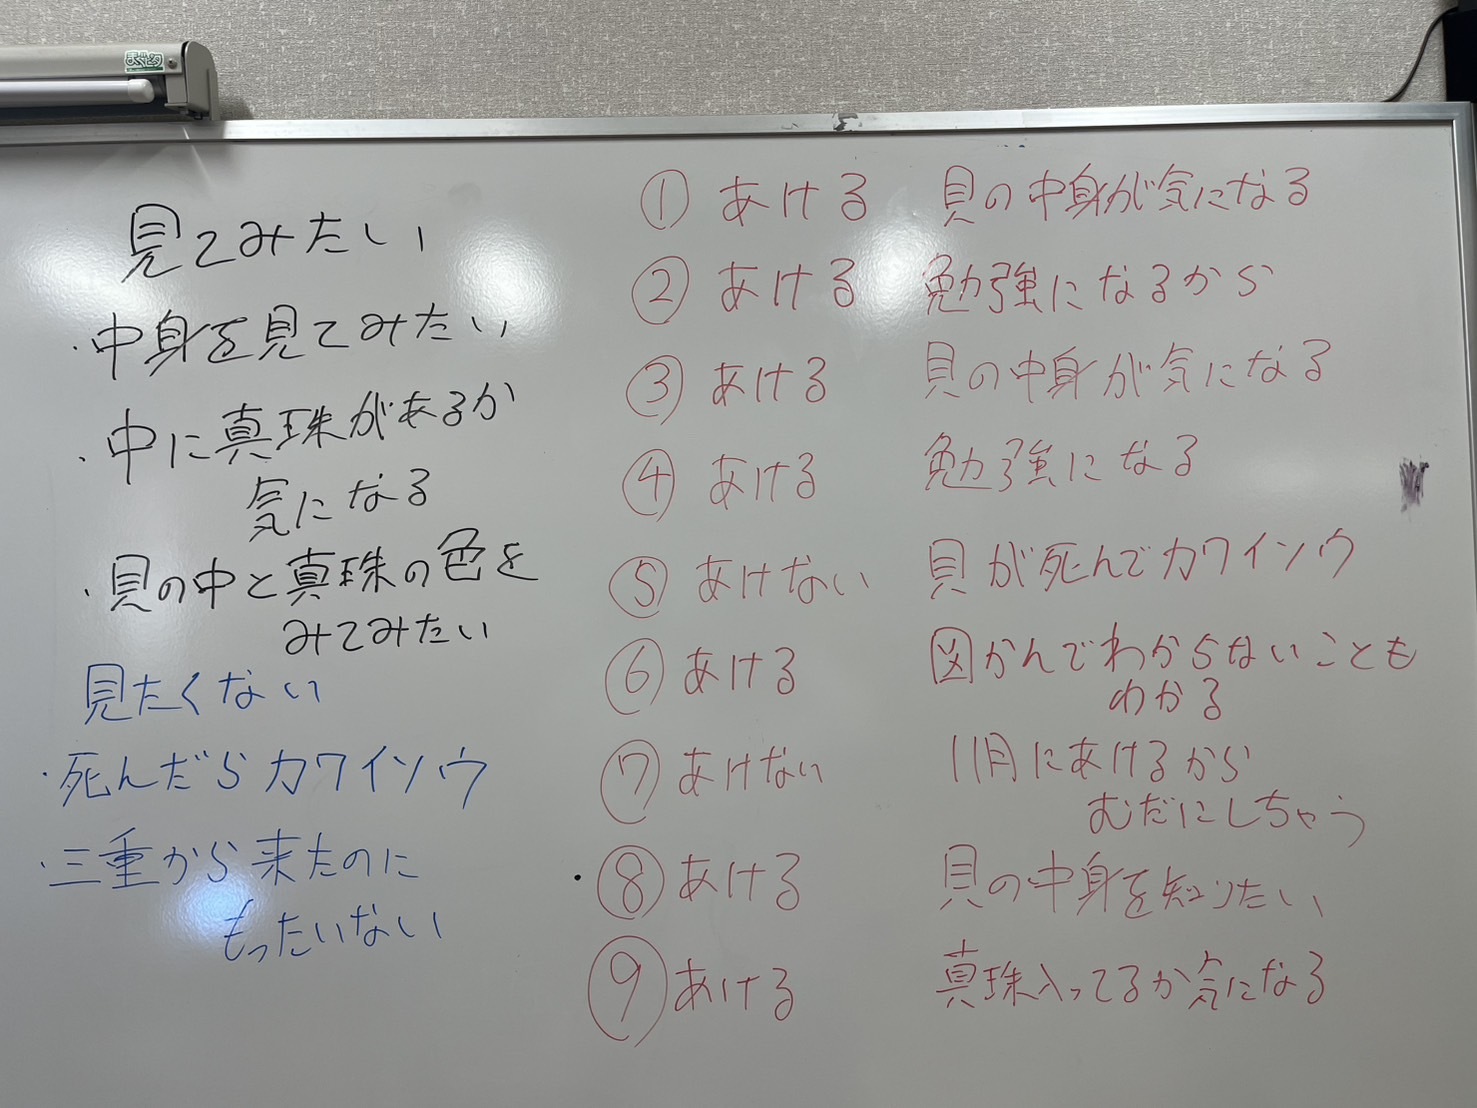 見てみたい
・中身を見てみたい
・中に真珠があるか
気になる
・貝の中と真珠の色を
みてみたい
見たくない
・死んだらカワイソウ
・三重から来たのに
もったいない
① あける 貝の中身が気になる
② あける 勉強になるから
③ あける 貝の中身が気になる
④ あける 勉強になる
⑤ あけない 貝が死んでカワイソウ
⑥ あける 図かんでわからないことも
わかる
⑦ あけない 11月にあけるから
むだにしちゃう
・⑧ あける 貝の中身を知りたい
⑨ あける 真珠入ってるか気になる